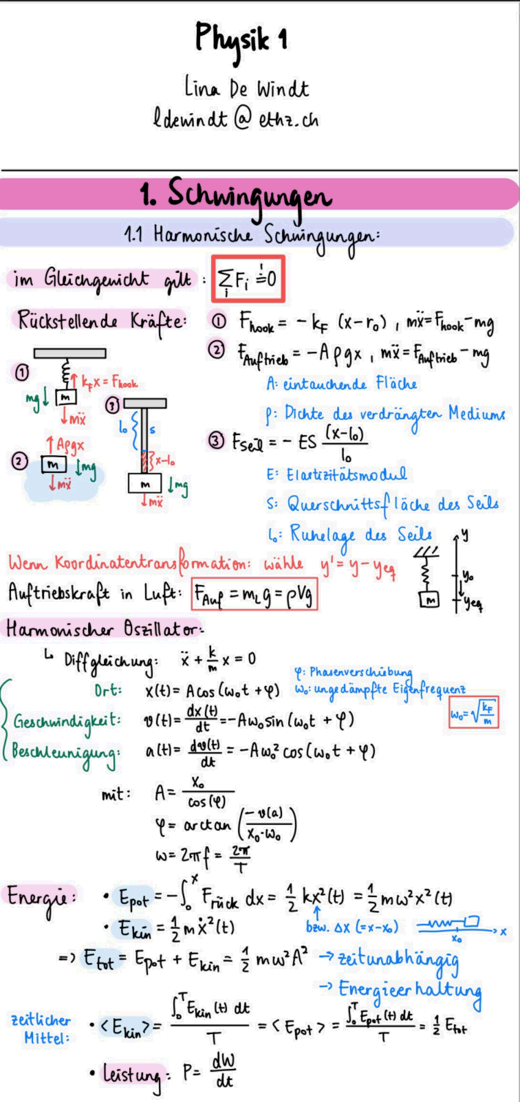 Physik 1
Lina De Windt
ldewindt@ethz.ch
1. Schwingungen
1.1 Harmonische Schwingungen:
im Gleichgewicht gilt : ∑_i F_i =! 0
Rückstellende Kräfte: ① F_hook = - k_F (x-r_0) , mẍ = F_hook - mg
② F_Auftrieb = - A ρ g x , mẍ = F_Auftrieb - mg
A: eintauchende Fläche
ρ: Dichte des verdrängten Mediums
③ F_Seil = - ES (x-l_0)/l_0
E: Elastizitätsmodul
S: Querschnittsfläche des Seils
l_0: Ruhelage des Seils
① k_F x = F_hook
mg m
mẍ
③
l_0 s
x-l_0
m mg
mẍ
② Aρgx
m mg
mẍ
Wenn Koordinatentransformation: wähle y' = y - y_eq
y
y_0
m y_eq
Auftriebskraft in Luft: F_Auf = m_L g = ρVg
Harmonischer Oszillator:
↳ Diffgleichung: ẍ + k/m x = 0
φ: Phasenverschübung
ω_0: ungedämpfte Eigenfrequenz
ω_0 = √(k_F/m)
Ort: x(t) = A cos(ω_0 t + φ)
Geschwindigkeit: v(t) = dx(t)/dt = -Aω_0 sin(ω_0 t + φ)
Beschleunigung: a(t) = dv(t)/dt = -Aω_0² cos(ω_0 t + φ)
mit: A = x_0/cos(φ)
φ = arctan(-v(a)/(x_0·ω_0))
ω = 2πf = 2π/T
Energie: • E_pot = -∫_0^x F_rück dx = 1/2 kx²(t) = 1/2 mω²x²(t)
• E_kin = 1/2 mẋ²(t)
bzw. Δx (=x-x_0)
x_0 x
=> E_tot = E_pot + E_kin = 1/2 mω²A² → zeitunabhängig
→ Energieerhaltung
zeitlicher Mittel: • <E_kin> = ∫_0^T E_kin(t) dt / T = <E_pot> = ∫_0^T E_pot(t) dt / T = 1/2 E_tot
• Leistung: P = dW/dt